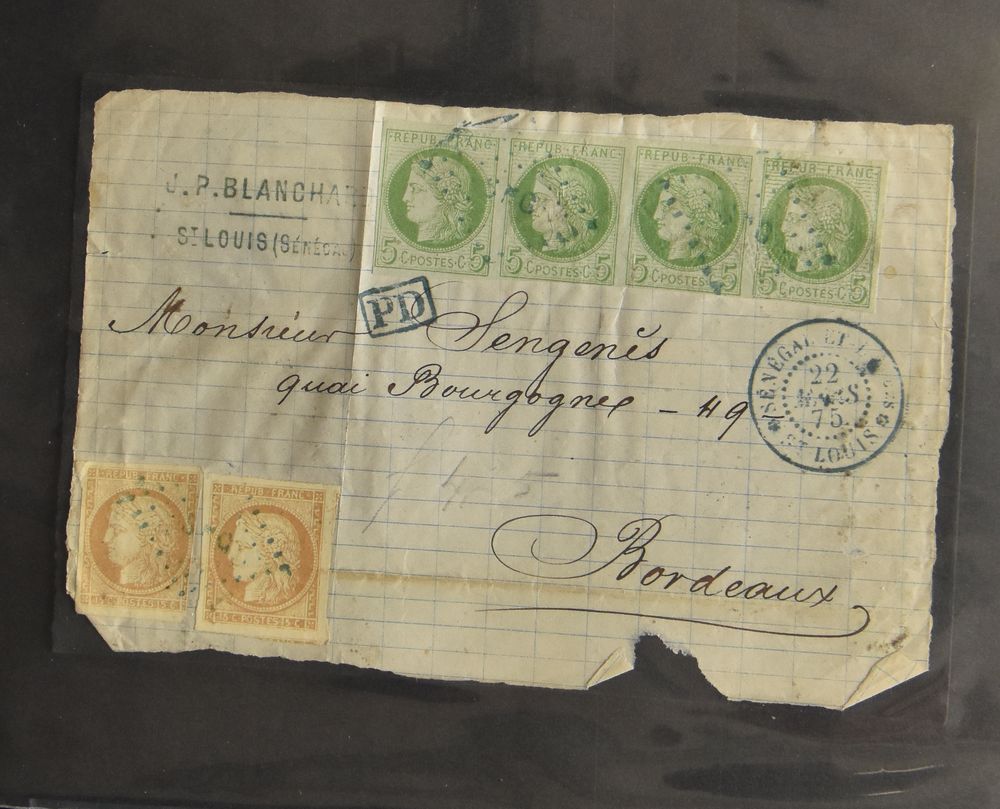 J.P. BLANCHA
ST LOUIS (SÉNÉGAL)
REPUB FRANC
5 C·POSTES·C 5
REPUB FRANC
5 C·POSTES·C 5
REPUB FRANC
5 C·POSTES·C 5
REPUB FRANC
5 C·POSTES·C 5
PD
Monsieur Sengenès
quai Bourgogne - 49 -
Bordeaux
SÉNÉGAL ET
22
MARS
75
ST LOUIS
REPUB FRANC
15 C POSTES 15 C
REPUB FRANC
15 C POSTES 15 C